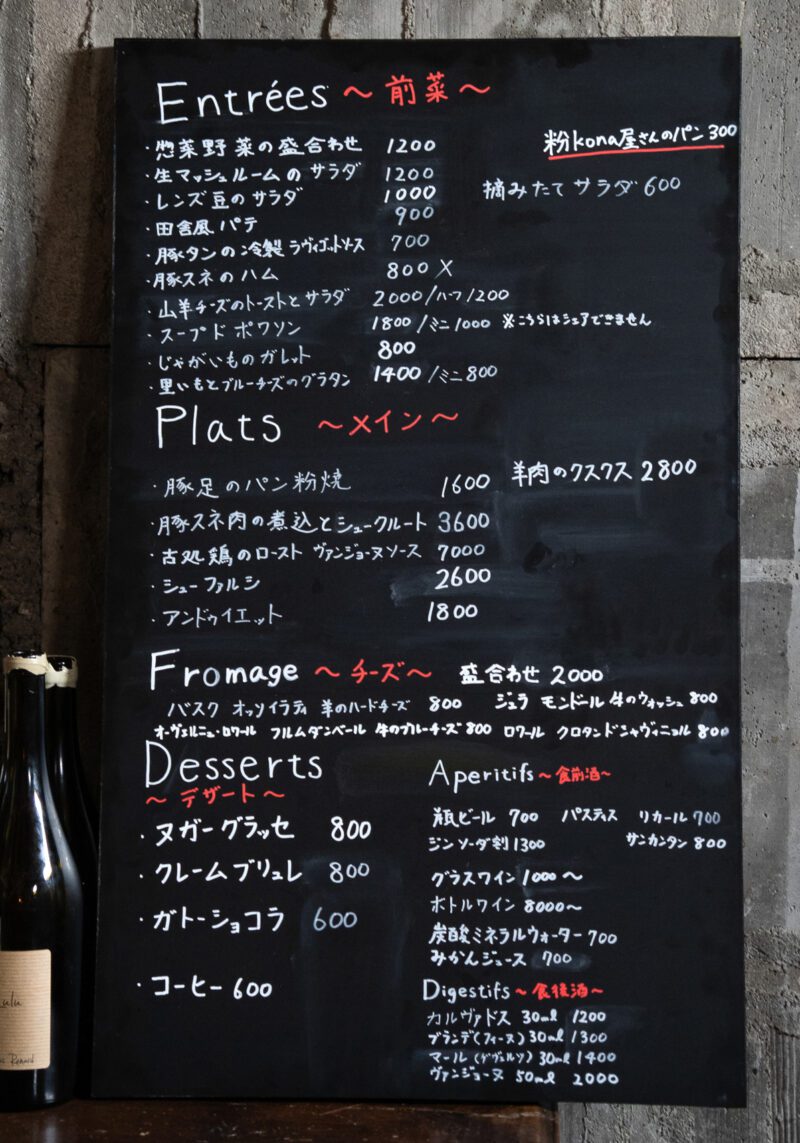 Entrées ～前菜～
粉kona屋さんのパン300
・惣菜野菜の盛合わせ 1200
・生マッシュルームの サラダ 1200
摘みたて サラダ 600
・レンズ豆の サラダ 1000
・田舎風 パテ 900
・豚タンの冷製 ラヴィゴットソース 700
・豚スネの ハム 800 X
・山羊チーズのトーストと サラダ 2000/ハーフ1200
・スープ ド ポワソン 1800/ミニ1000 ※こちらはシェアできません
・じゃがいもの ガレット 800
・里いもとブルーチーズのグラタン 1400/ミニ800
Plats ～メイン～
羊肉のクスクス 2800
・豚足のパン粉焼 1600
・豚スネ肉の煮込とシュークルート 3600
・古処鶏のロースト ヴァンジョーヌソース 7000
・シューファルシ 2600
・アンドゥイエット 1800
Fromage ～チーズ～ 盛合わせ 2000
バスク オッソイラティ 羊のハードチーズ 800 ジュラ モンドール 牛のウォッシュ 800
オーヴェルニュ・ロワール フルムダンベール 牛のブルーチーズ 800 ロワール クロタンドシャヴィニョル 800
Desserts
～デザート～
・ヌガーグラッセ 800
・クレームブリュレ 800
・ガトーショコラ 600
・コーヒー 600
Aperitifs ～食前酒～
瓶ビール 700 パスティス リカール 700
ジンソーダ割 1300 サンカンタン 800
グラスワイン 1000～
ボトルワイン 8000～
炭酸ミネラルウォーター 700
みかんジュース 700
Digestifs ～食後酒～
カルヴァドス 30ml 1200
ブランデ(フィーヌ) 30ml 1300
マール 30ml 1400
ヴァンジョーヌ 50ml 2000
Lulu
Renard